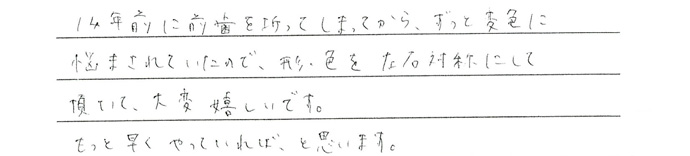 14年前に前歯を折ってしまってから、ずっと変色に
悩まされていたので、形・色を左右対称にして
頂いて、大変嬉しいです。
もっと早くやっていれば、と思います。